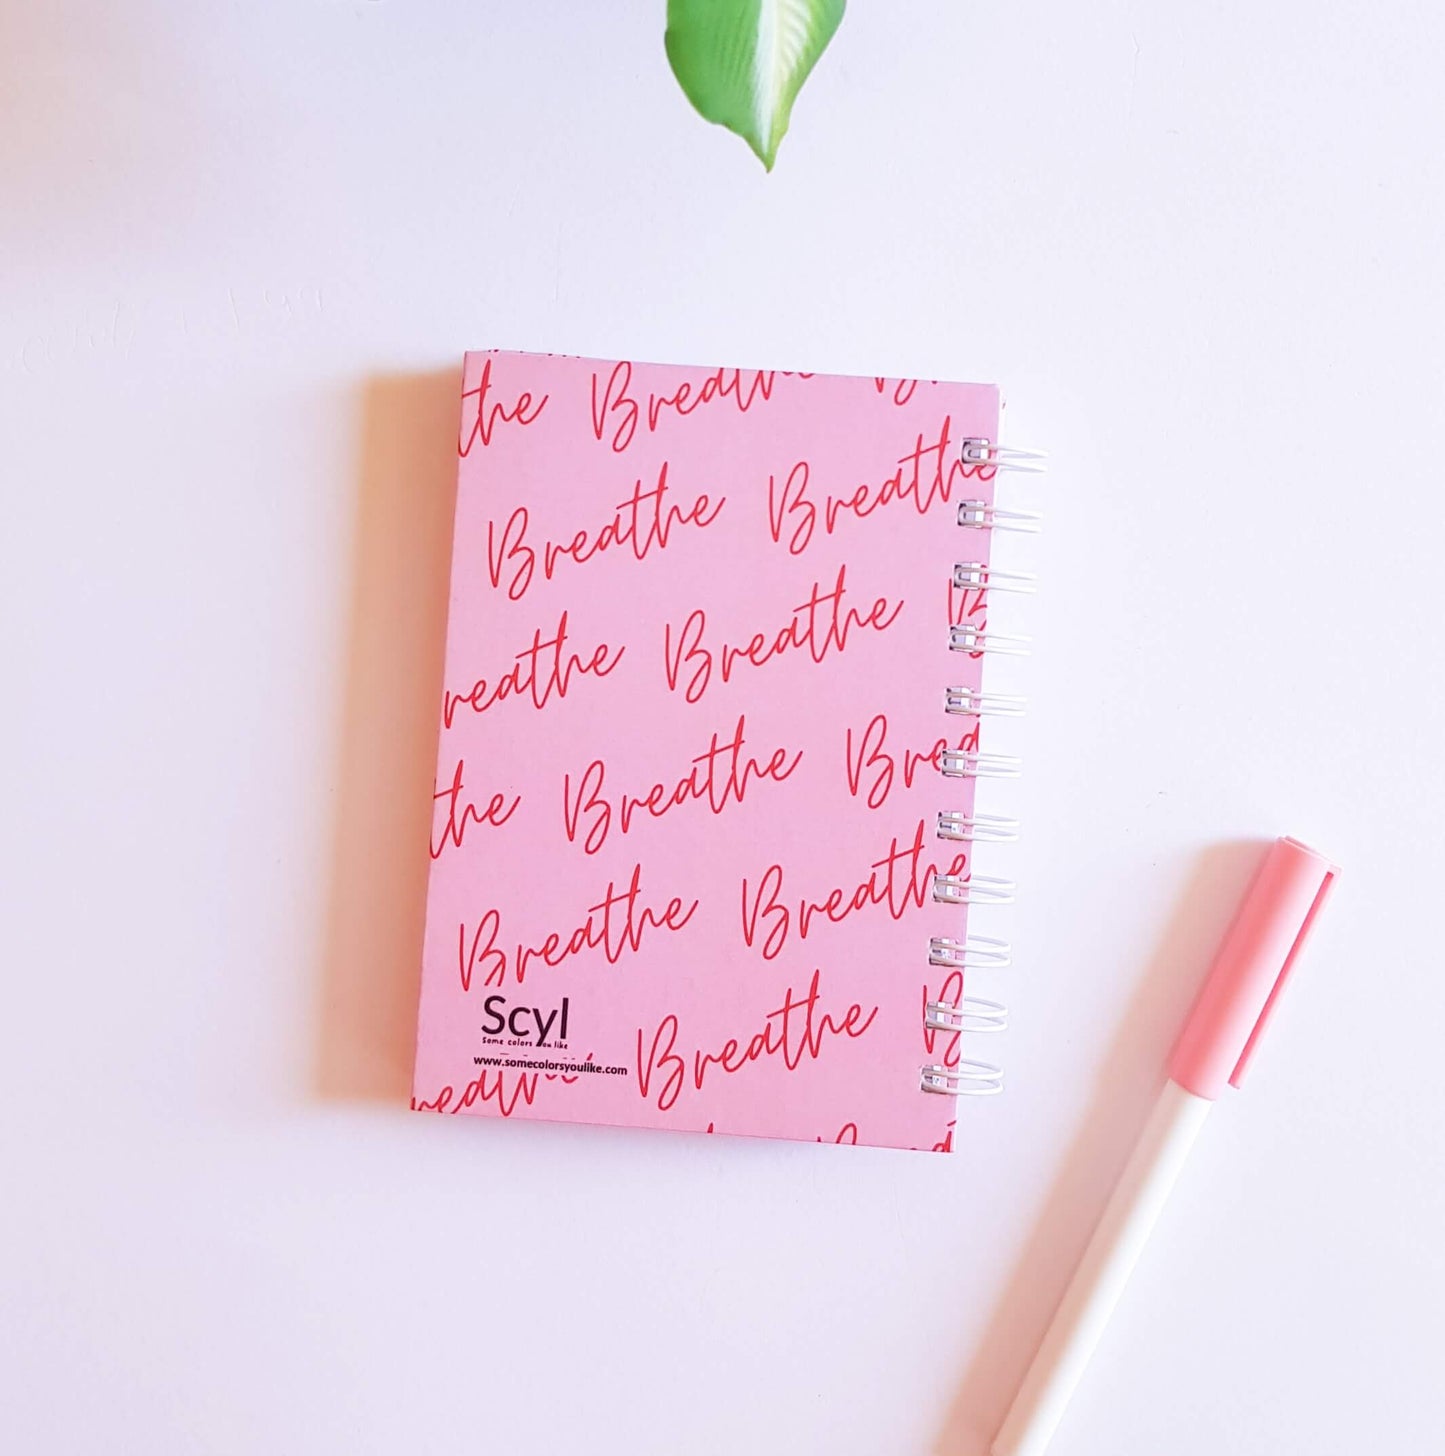 the Breathe B
Breathe Breathe
reathe Breathe B
the Breathe Brea
Breathe Breathe
Scyl
Some colors you like
www.somecolorsyoulike.com
reathe Breathe B